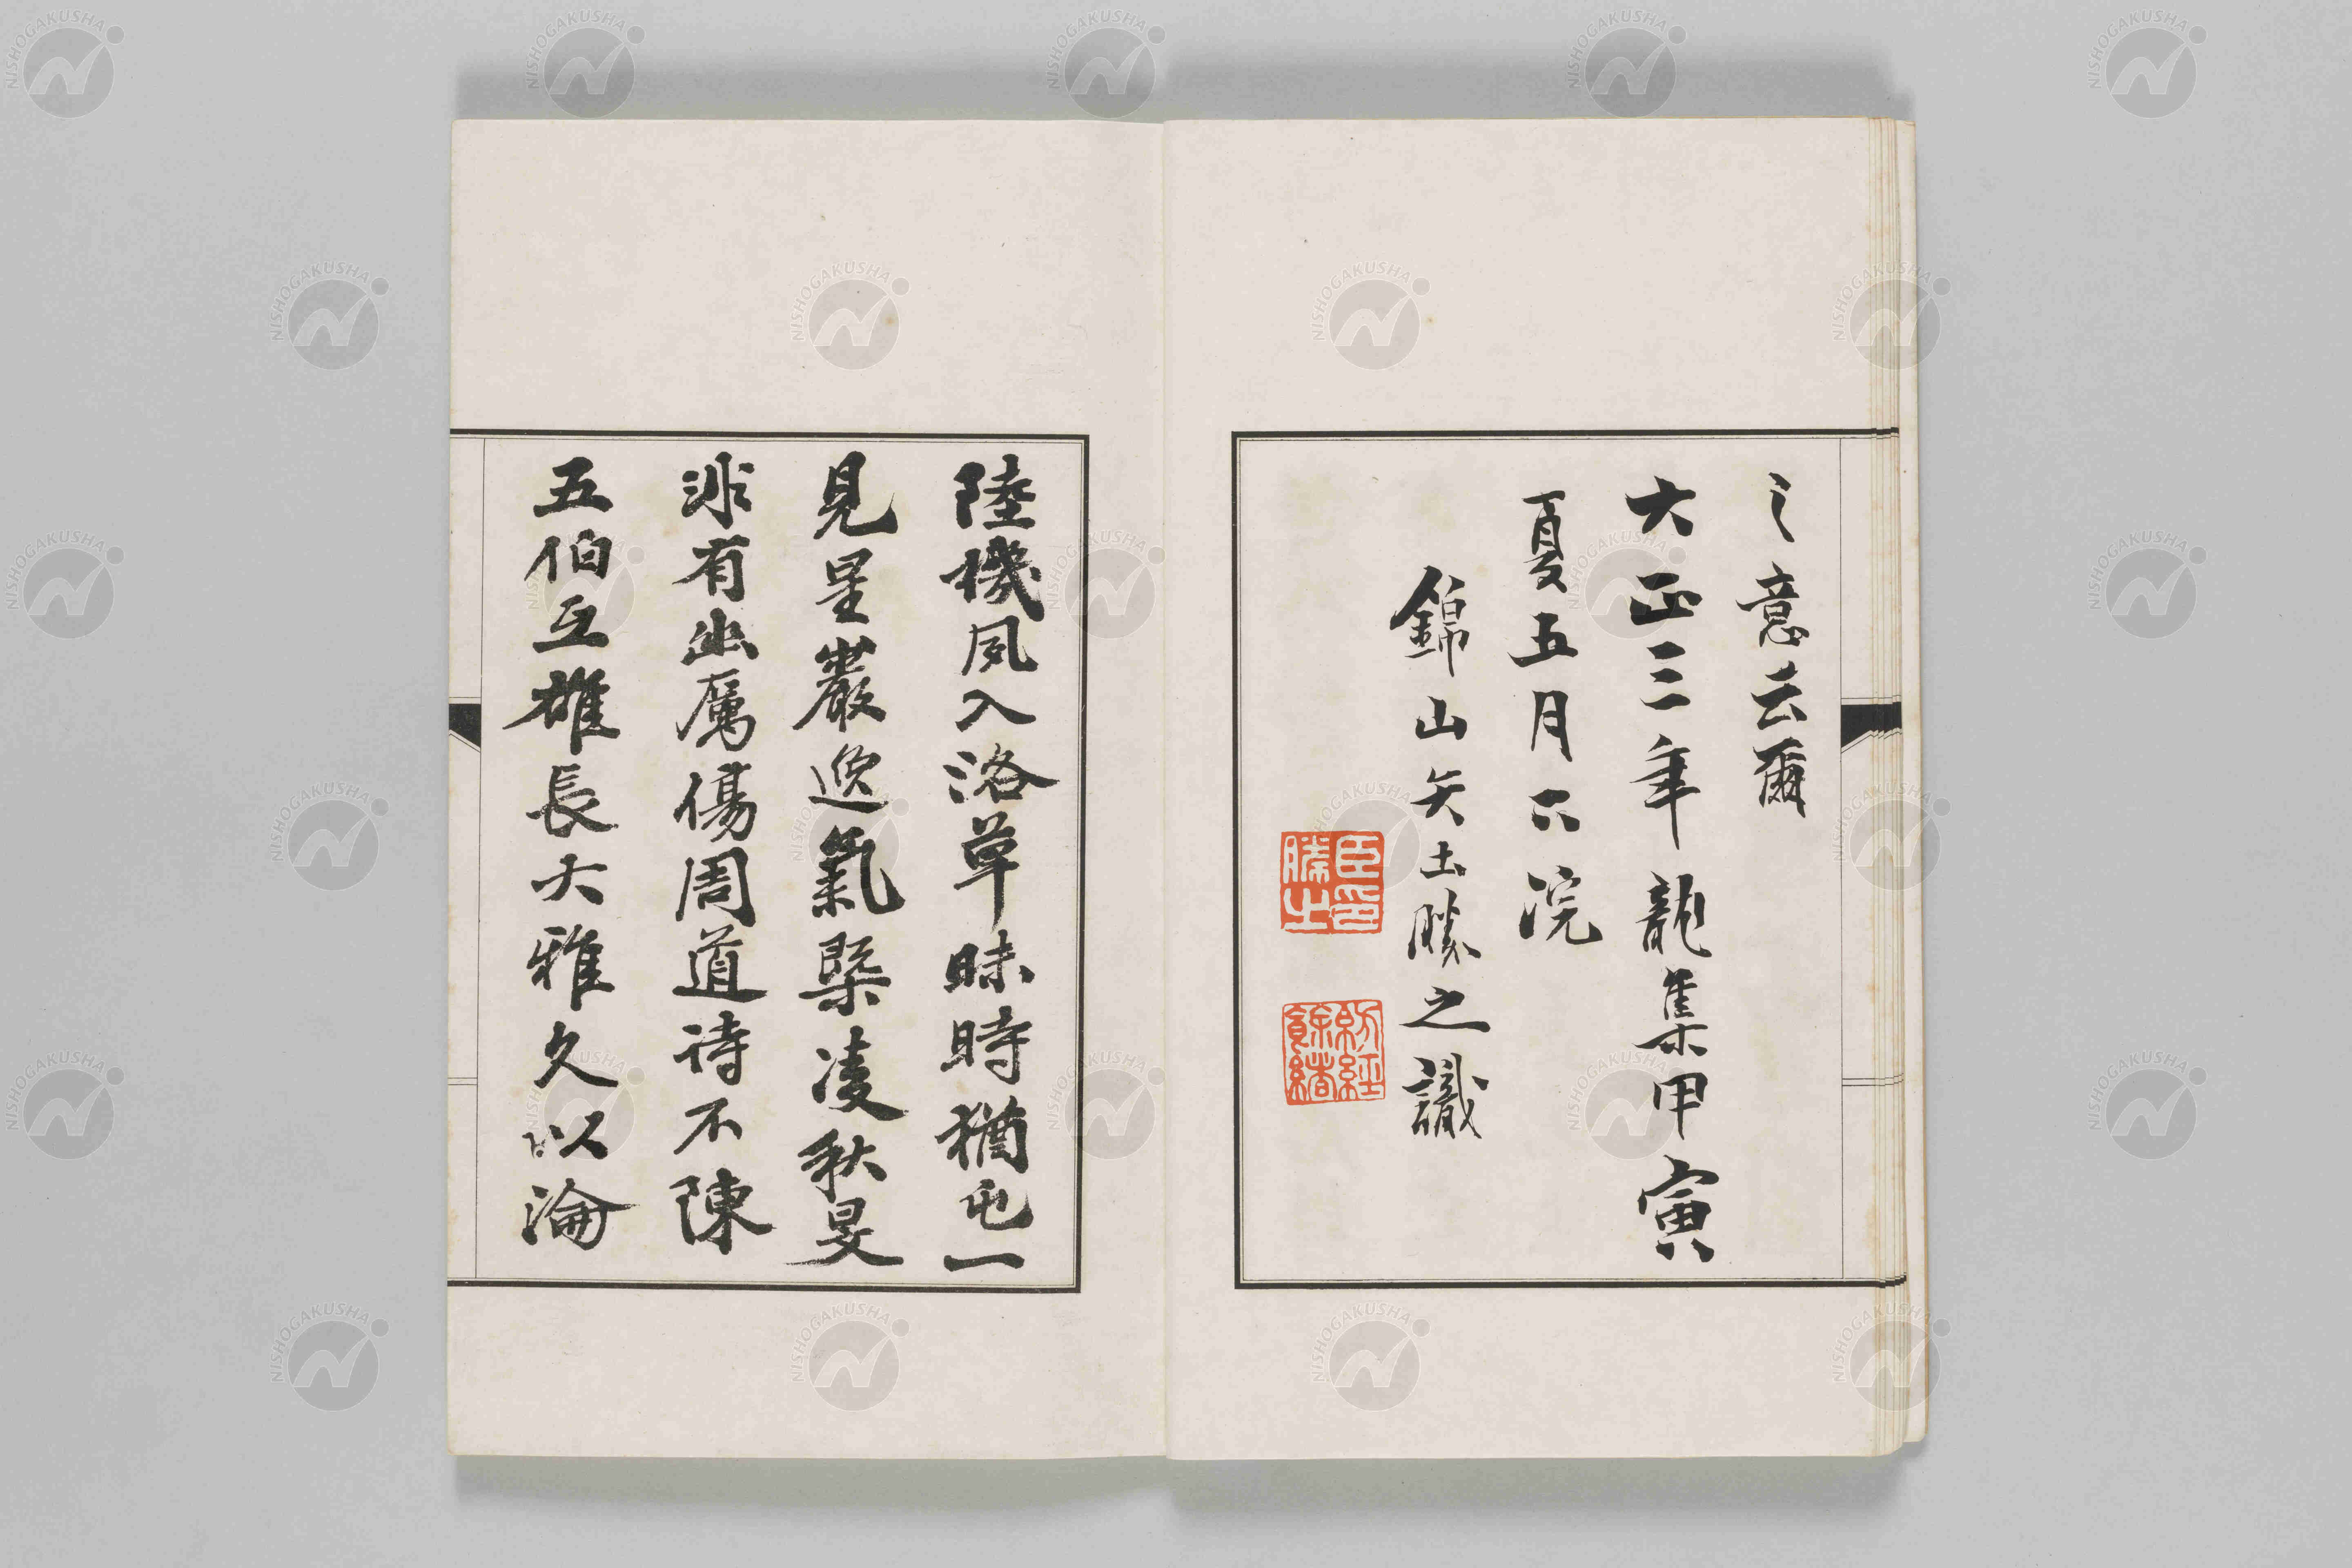 之意云爾
大正三年龍集甲寅
夏五月六浣
錦山矢土勝之識
臣印勝之
陸機夙入洛草昧時猶屯一
見星巖逸氣槩凌秋旻
非有幽厲傷周道詩不陳
五伯互雄長大雅久以淪
NISHOGAKUSHA